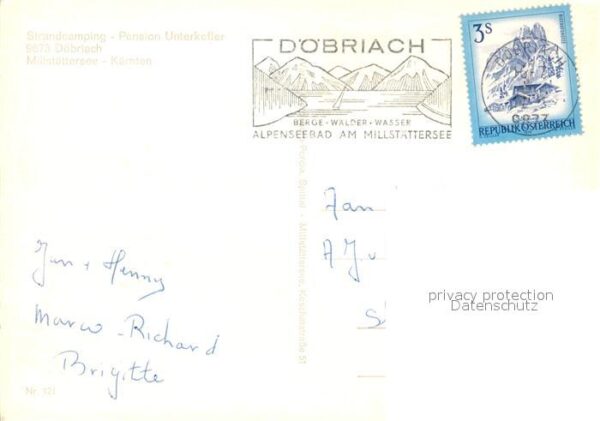 Strandcamping - Pension Unterkofler
9873 Döbriach
Millstättersee - Kärnten
DÖBRIACH
BERGE · WÄLDER · WASSER
ALPENSEEBAD AM MILLSTÄTTERSEE
3S
DÖBRIACH
9873
REPUBLIK ÖSTERREICH
Porcia, Spittal - Millstättersee,
51
Fam
A. J. v
privacy protection
Datenschutz
Jan + Henny
Marco - Richard
Brigitte
Nr. 121